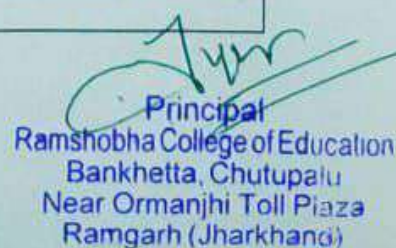 Principal
Ramshobha College of Education
Bankhetta, Chutupalu
Near Ormanjhi Toll Plaza
Ramgarh (Jharkhand)